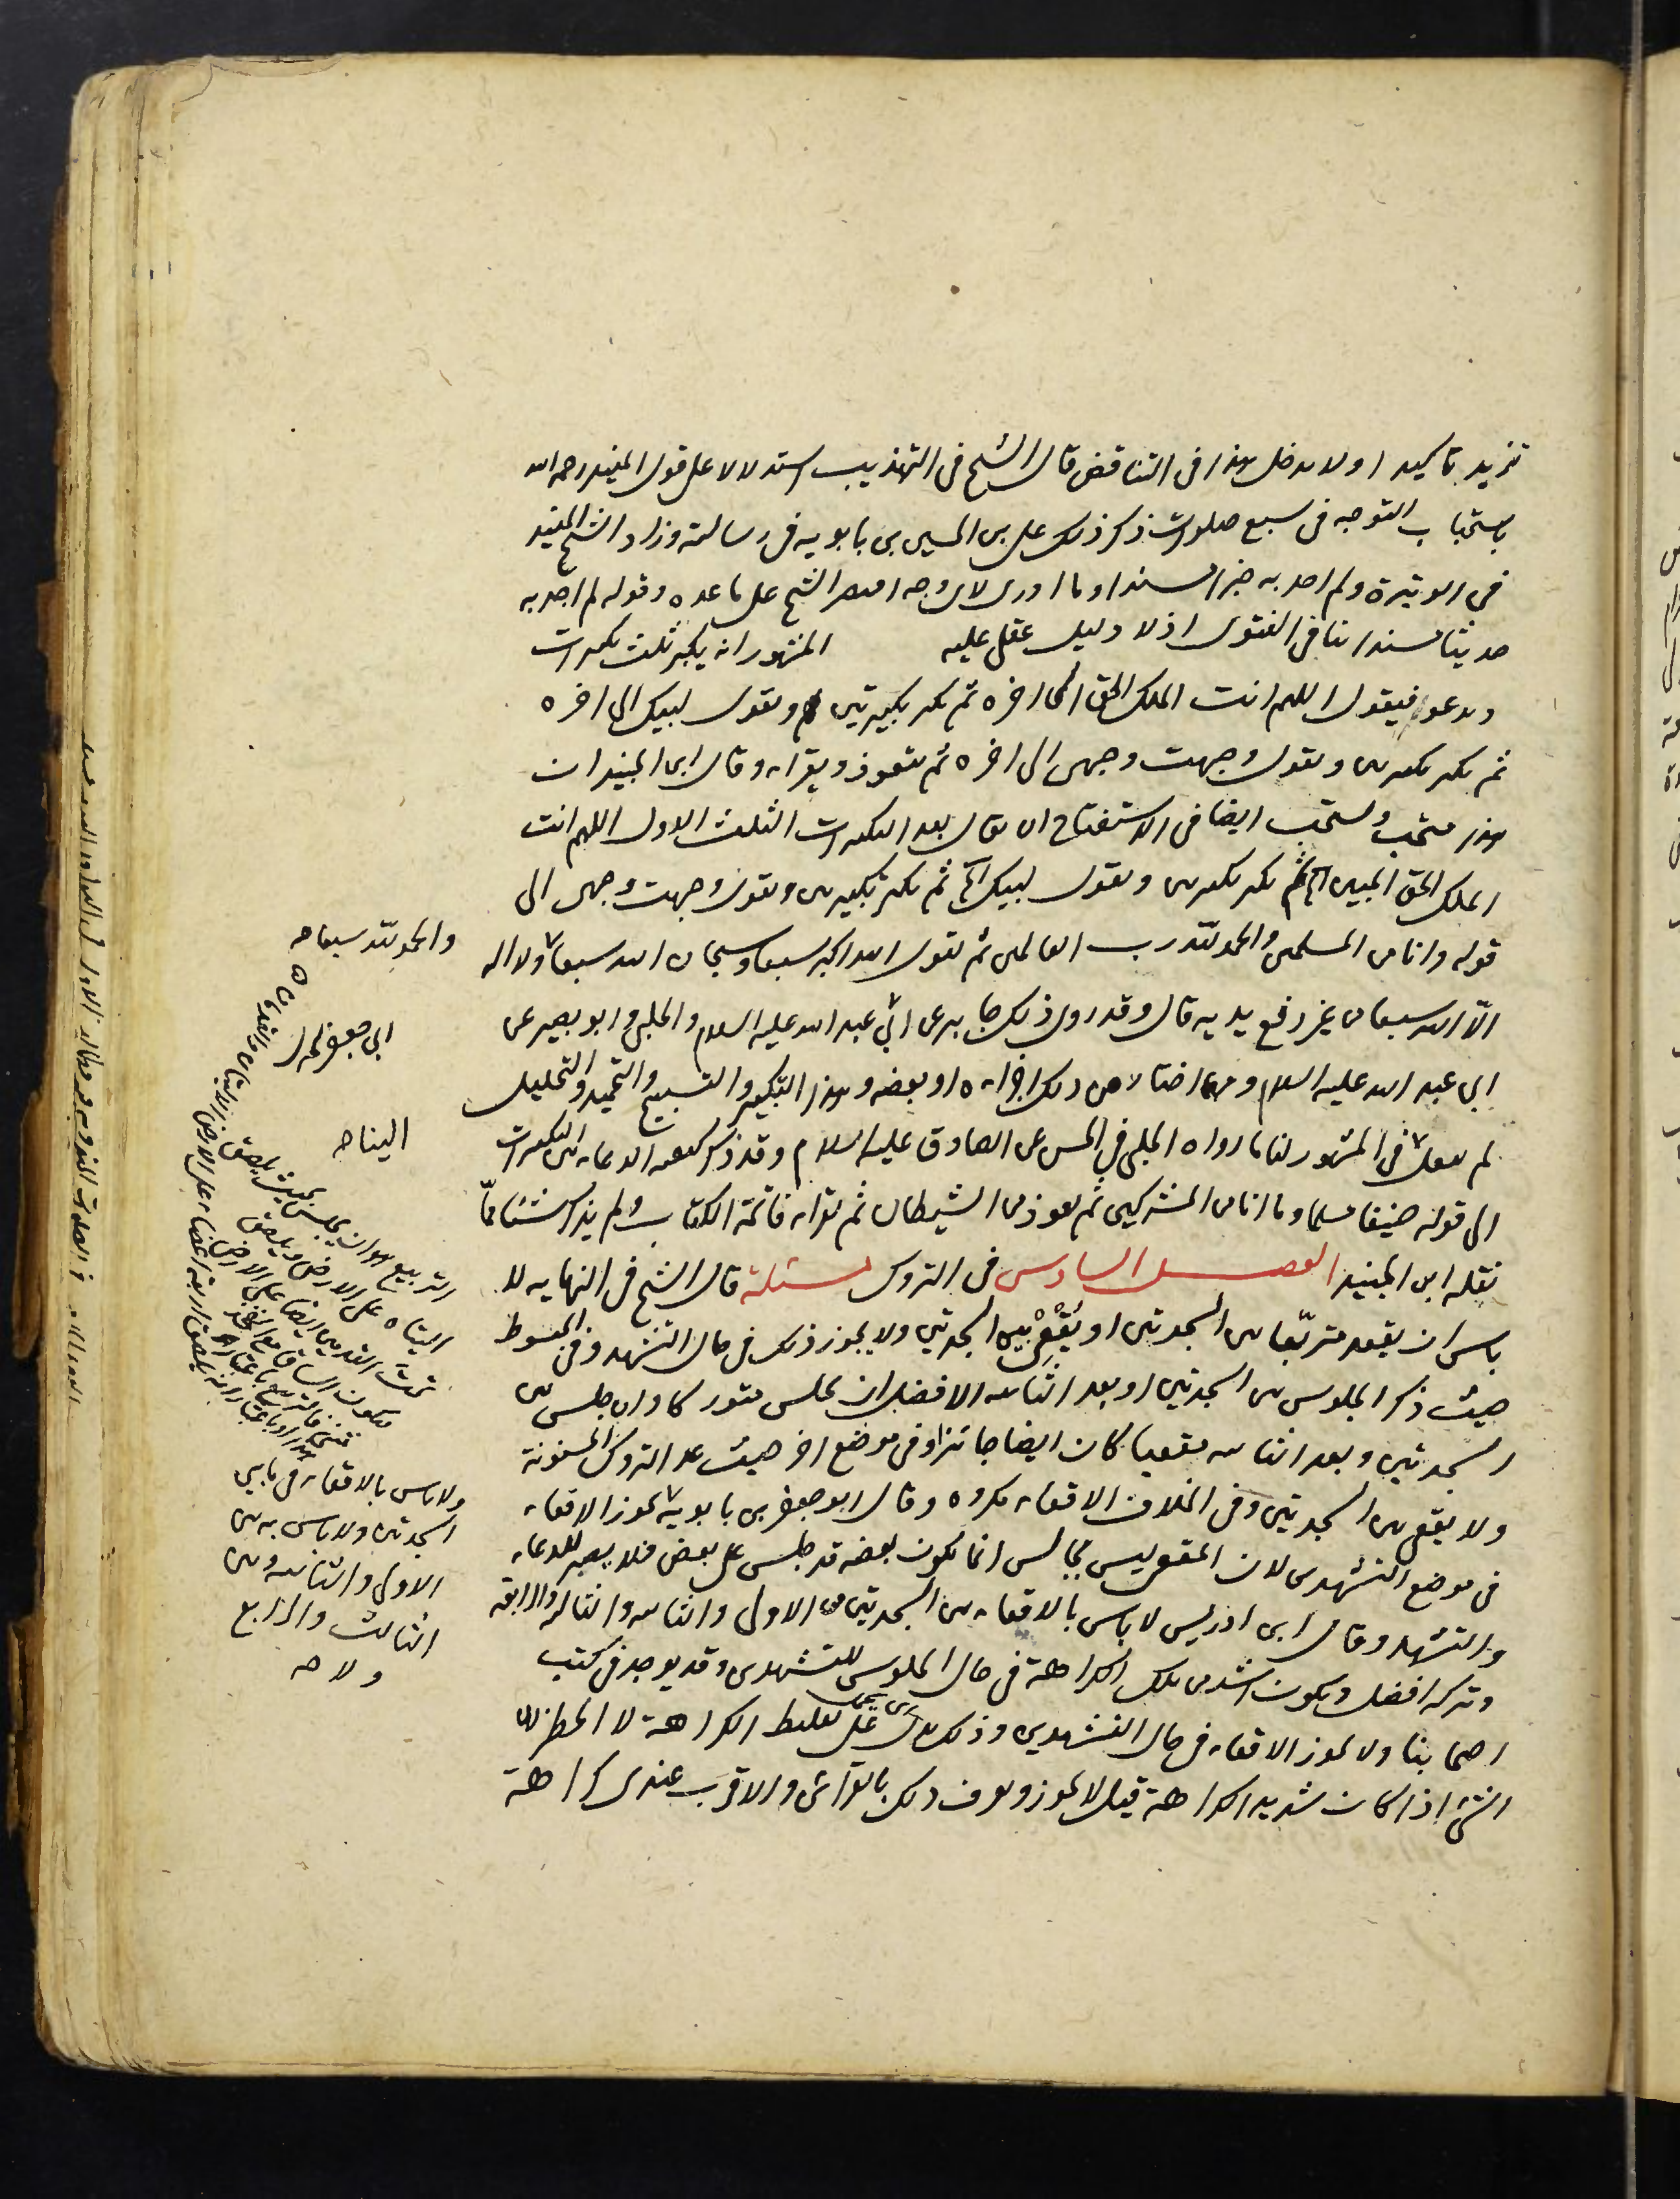 تزيد تاكيدا ولا مدخل لهذا فى التناقض قال الشيخ فى التهذيب استدلالا على قول المفيد رحمه الله
باستحباب التوجه فى سبع صلوات ذكر ذلك على بن الحسين بن بابويه فى رسالته وزاد الشيخ المفيد
فى الوتيرة ولم اجد به خبرا مسندا وما ادرى لاى وجه اقتصر الشيخ على ما عده وقوله لم اجد به
حديثا مسندا ينافى الفتوى اذ لا دليل عقلى عليه المشهور انه يكبر ثلث تكبيرات
ويدعو فيقول اللهم انت الملك الحق الى اخره ثم يكبر تكبيرتين ويقول لبيك الى اخره
ثم يكبر تكبيرتين ويقول وجهت وجهى الى اخره ثم يتعوذ ويقراء وقال ابن الجنيد ان
هذا مستحب ويستحب ايضا فى الاستفتاح ان يقال بعد التكبيرات الثلث الاول اللهم انت
الملك الحق المبين آه ثم يكبر تكبيرتين ويقول لبيك آه ثم يكبر تكبيرتين ويقول وجهت وجهى الى
قوله وانا من المسلمين والحمد لله رب العالمين ثم يقول الله اكبر سبعا وسبحان الله سبعا ولا اله
الّا الله سبعا من غير رفع يديه قال وقد روى ذلك جابر عن ابى عبد الله عليه السلام والحلبى وابو بصير عن
ابى عبد الله عليه السلام ومهما اختار من ذلك اجزاءه او بعضه وهذا التكبير والتسبيح والتحميد والتهليل
لم ينقل فى المشهور لنا ما رواه الحلبى فى الحسن عن الصادق عليه السلام وقد ذكر كيفية الدعاء بين التكبيرات
الى قوله حنيفا مسلما وما انا من المشركين ثم تعوذ من الشيطان ثم تقراء فاتحة الكتاب ولم يذكر شيئا ممّا
نقله ابن الجنيد الفصل السادس فى التروك مسئلة قال الشيخ فى النهاية لا
باس ان يقعد متربّعا بين السجدتين او يُقْعِىْ بين السجدتين ولا يجوز ذلك فى حال التشهد وفى المبسوط
حيث ذكر الجلوس بين السجدتين او بعد الثانية الافضل ان يجلس متوركا وان جلس بين
السجدتين وبعد الثانية مقعيا كان ايضا جائزا وفى موضع اخر حيث عد التروك المسنونة
ولا يقعى بين السجدتين وفى الخلاف الاقعاء مكروه وقال ابو جعفر بن بابويه لا يجوز الاقعاء
فى موضع التشهدين لان المقعى ليس بجالس انما يكون بعضه قد جلس على بعض فلا يصبر للدعاء
والتشهد وقال ابن ادريس لا باس بالاقعاء بين السجدتين من الاولى والثانية والثالثة والرابعة
وتركه افضل ويكون اشد من تلك الكراهة فى حال الجلوس للتشهدين وقد يوجد فى كتب
اصحابنا ولا يجوز الاقعاء فى حال التشهدين وذلك على تغليظ الكراهة لا الحظر لان
الشئ اذا كان شديد الكراهة قيل لا يجوز ويعرف ذلك بالقرائن والاقرب عندى كراهة
والحمد لله سبعا صه
ابى جعفر
اليتاه
التربيع هو ان يجلس بحيث يلصق
اليتاه على الارض ويلصق
تحت القدمين ايضا على الارض
ويكون الساق مع الفخذ
ولا باس بالاقعاء فى ما بين
السجدتين ولا باس به بين
الاولى والثانية وبين
الثالث والرابع